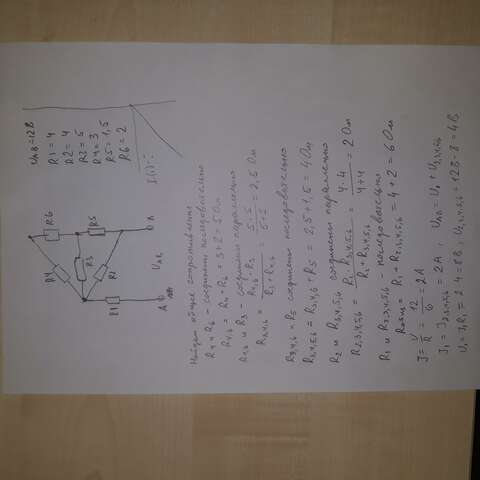 R4
R6
R3
R5
R2
R1
U AB
A
B
U AB = 12 В
R1 = 4
R2 = 4
R3 = 5
R4 = 3
R5 = 1,5
R6 = 2
Найдем общее сопротивление
R4 и R6 - соединены последовательно
R4,6 = R4 + R6 = 3 + 2 = 5 Ом
R4,6 и R3 - соединены параллельно
R3,4,6 = R4,6 · R3 / R3 + R4,6 = 5 · 5 / 5 + 5 = 2,5 Ом
R3,4,6 и R5 соединены последовательно
R3,4,5,6 = R3,4,6 + R5 = 2,5 + 1,5 = 4 Ом
R2 и R3,4,5,6 соединены параллельно
R2,3,4,5,6 = R2 · R3,4,5,6 / R2 + R3,4,5,6 = 4 · 4 / 4 + 4 = 2 Ом
R1 и R2,3,4,5,6 - последовательно
Rобщ = R1 + R2,3,4,5,6 = 4 + 2 = 6 Ом
J = U / R = 12 / 6 = 2A
J1 = J2,3,4,5,6 = 2A ; UAB = U1 + U2,3,4,5,6
U1 = J1 R1 = 2·4 = 8 В ; U2,3,4,5,6 = 12 В - 8 = 4 В.